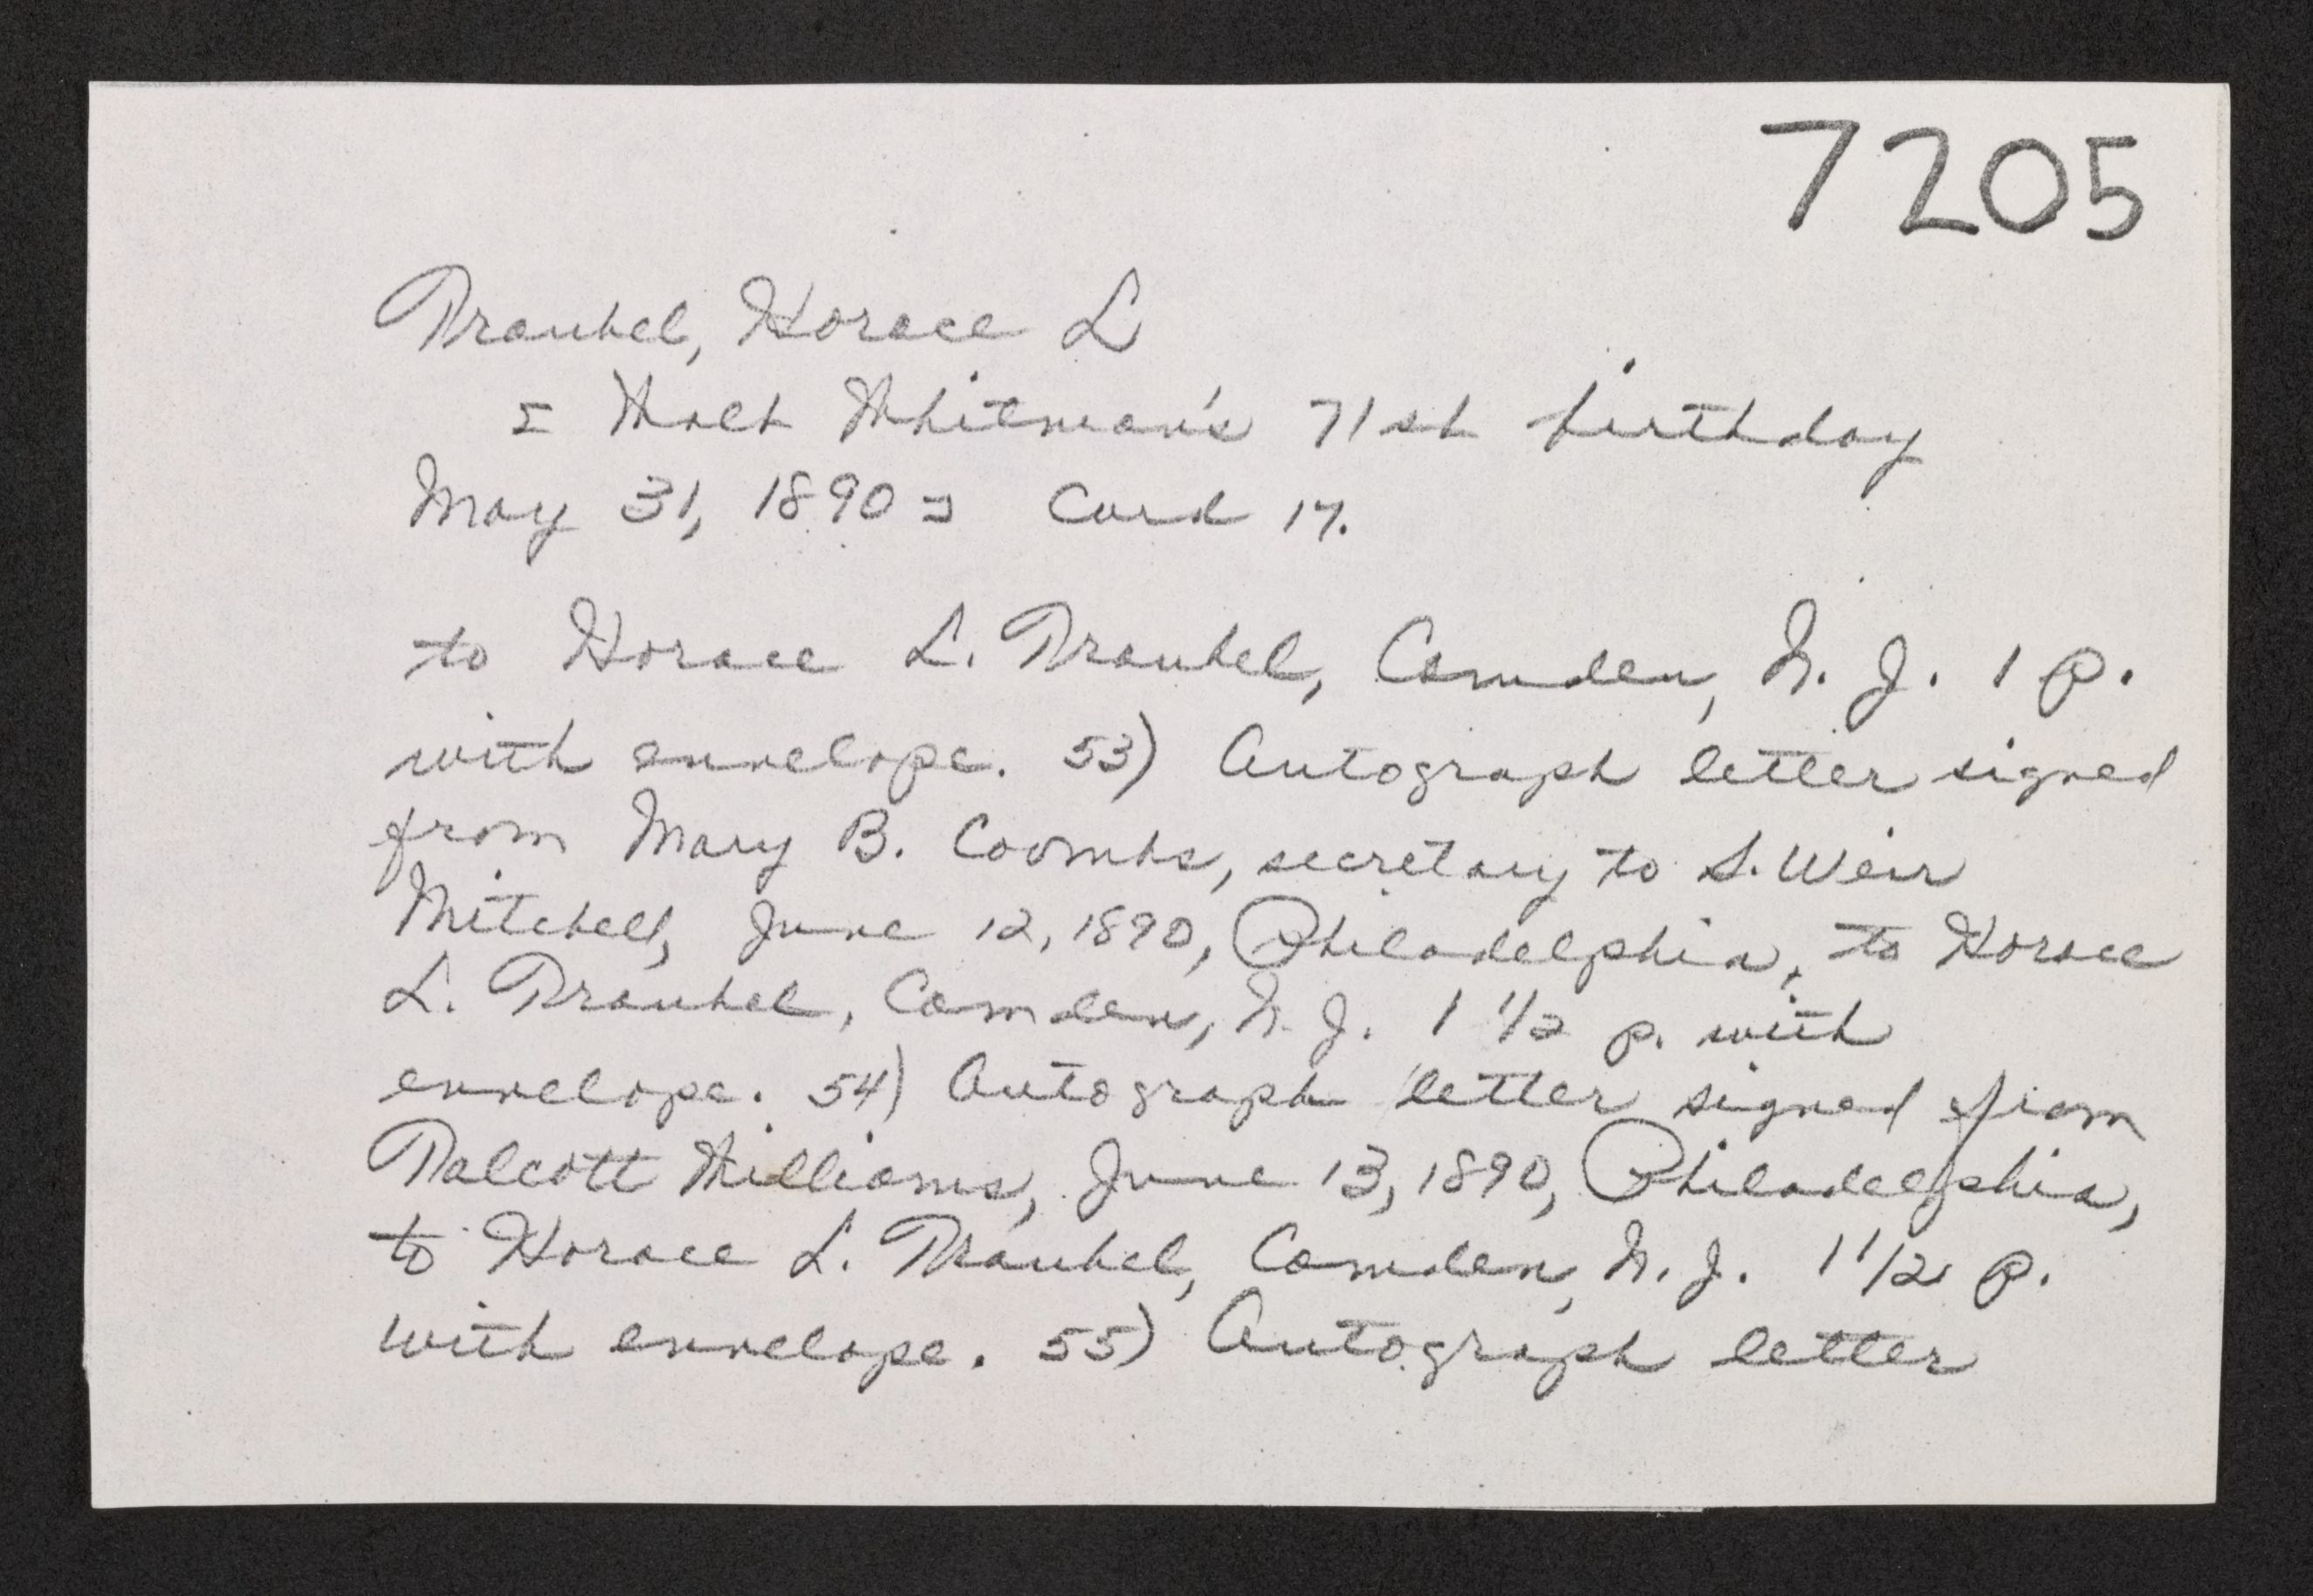 7205
Traubel, Horace L
[ Walt Whitman's 71st birthday
May 31, 1890 ] Card 17.
to Horace L. Traubel, Camden, N. J. 1 p.
with envelope. 53) Autograph letter signed
from Mary B. Coombs, secretary to S. Weir
Mitchell, June 12, 1890, Philadelphia, to Horace
L. Traubel, Camden, N. J. 1 1/2 p. with
envelope. 54) Autograph letter signed from
Talcott Williams, June 13, 1890, Philadelphia,
to Horace L. Traubel, Camden, N. J. 1 1/2 p.
with envelope. 55) Autograph letter